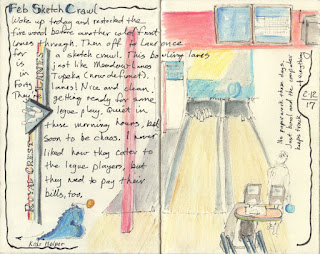 Feb Sketch Crawl
Woke up today and restocked the
fire wood before another cold front
comes through. Then off to Lawrence
for a sketch crawl. This bowling lanes
is just like Meadow Lanes
in Topeka (now defunct).
Forty lanes! Nice and clean
They're getting ready for some
league play. Quiet in
these morning hours, but
soon to be chaos. I never
liked how they cater to
the legue players, but
they need to pay their
bills, too.
ROYAL CREST LANES
Knee Helper
No paper and these days.
Just bowl and the computer
keeps track everything
2
17